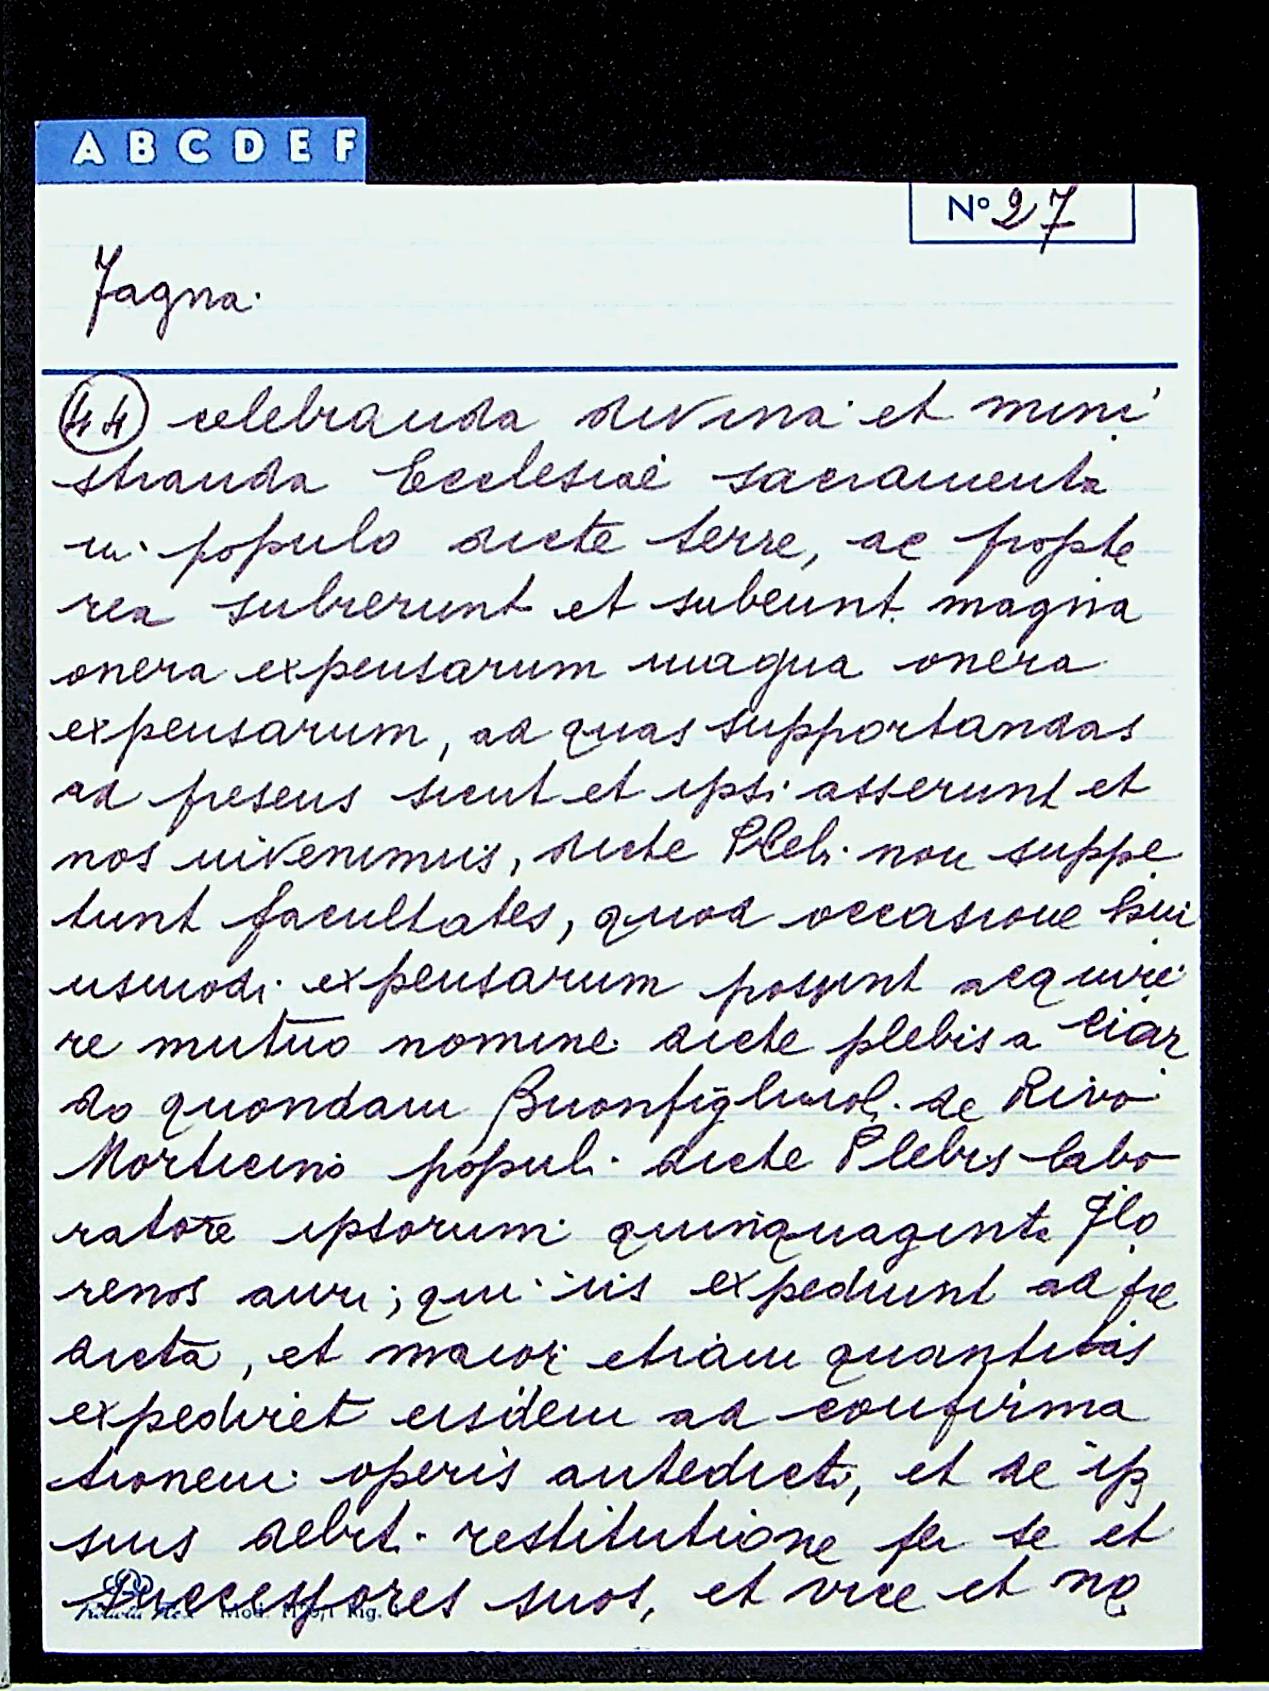 A B C D E F
Nº 27
Fagna.
44 celebranda divina et mini
stranda Ecclesiae sacramenta
in populo dicte terre, ac propte
rea subierunt et subeunt magna
onera expensarum magna onera
expensarum, ad quas supportandas
ad presens sicut et ipsi asserunt et
nos invenimus, dicte Plebi non suppe
tunt facultates, quod occasione hui
usmodi expensarum possint acquire
re mutuo nomine dicte plebis a Ciar
do quondam Buonfigliuoli de Rivo
Morticino populi dicte Plebis labo
ratore ipsorum quinquaginta Flo
renos auri; qui iis expediunt ad pre
dicta, et maior etiam quantitas
expediret eisdem ad confirma
tionem operis antedicti, et de ip
sius debiti restitutione per se et
successores suos, et vice et no
Mod. Rig.